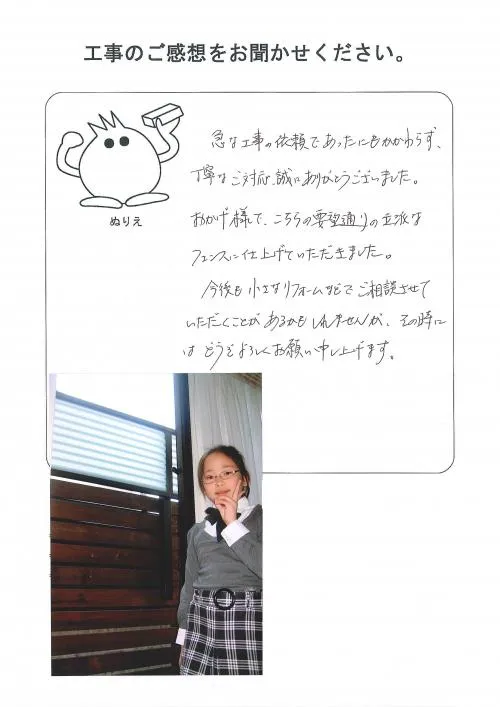 工事のご感想をお聞かせください。
ぬりえ
急な工事の依頼であったにもかかわらず、
丁寧なご対応、誠にありがとうございました。
おかげ様で、こちらの要望通りの立派な
フェンスに仕上げていただきました。
今後も小さなリフォームなどでご相談させて
いただくことがあるかもしれませんが、その時に
は どうぞよろしくお願い申し上げます。